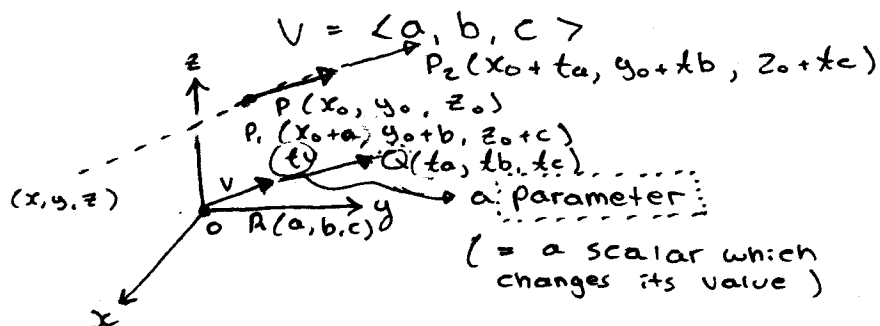 V = <a, b, c>
z
P₂(x₀+ta, y₀+tb, z₀+tc)
P(x₀, y₀, z₀)
P₁(x₀+a, y₀+b, z₀+c)
tv
Q(ta, tb, tc)
(x, y, z)
v
a parameter
O
R(a, b, c)
y
(= a scalar which
changes its value)
x